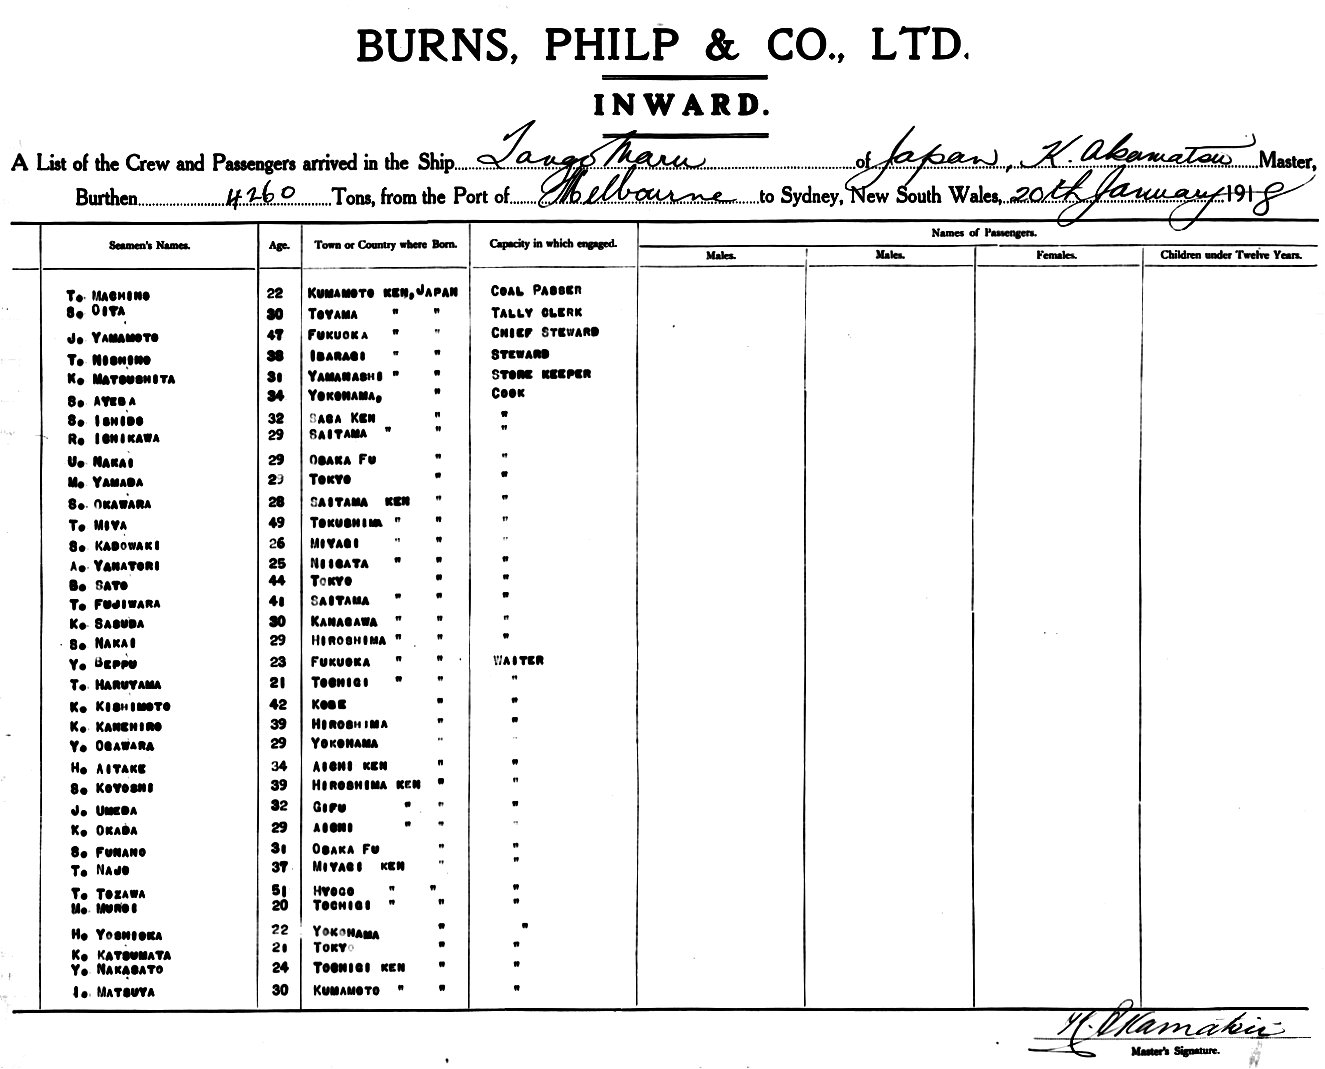 BURNS, PHILP & CO., LTD.
INWARD.
A List of the Crew and Passengers arrived in the Ship Tango Maru of Japan, K. Akamatsu Master,
Burthen 4260 Tons, from the Port of Melbourne to Sydney, New South Wales, 20th January 1918
Seamen's Names. Age. Town or Country where Born. Capacity in which engaged. Names of Passengers.
Males. Males. Females. Children under Twelve Years.
T. MACHINO 22 KUMAMOTO KEN, JAPAN COAL PASSER
S. OITA 30 TOYAMA " " TALLY CLERK
J. YAMAMOTO 47 FUKUOKA " " CHIEF STEWARD
T. NISHINO 38 IBARAGI " " STEWARD
K. MATSUSHITA 31 YAMANASHI " " STORE KEEPER
S. AYEBA 34 YOKOHAMA, " COOK
S. ISHIDO 32 SAGA KEN " "
R. ICHIKAWA 29 SAITAMA " " "
U. NAKAI 29 OSAKA FU " "
M. YAMADA 29 TOKYO " "
S. OKAWARA 28 SAITAMA KEN " "
T. MIYA 49 TOKUSHIMA " " "
S. KADOWAKI 26 MIYAGI " " "
A. YANATORI 25 NIIGATA " " "
B. SATO 44 TOKYO " "
T. FUJIWARA 41 SAITAMA " " "
K. SASUDA 30 KANAGAWA " " "
S. NAKAI 29 HIROSHIMA " " "
Y. BEPPU 23 FUKUOKA " " WAITER
T. HARUYAMA 21 TOCHIGI " " "
K. KISHIMOTO 42 KOBE " "
K. KANEHIRO 39 HIROSHIMA " "
Y. OGAWARA 29 YOKOHAMA " "
H. AITAKE 34 AICHI KEN " "
S. KOYOSHI 39 HIROSHIMA KEN " "
J. UMEDA 32 GIFU " " "
K. OKADA 29 AICHI " " "
S. FUNANO 31 OSAKA FU " "
T. NAJO 37 MIYAGI KEN " "
T. TOZAWA 51 HYOGO " " "
M. MUROI 20 TOCHIGI " " "
H. YOSHIOKA 22 YOKOHAMA " "
K. KATSUMATA 21 TOKYO " "
Y. NAKASATO 24 TOCHIGI KEN " "
I. MATSUYA 30 KUMAMOTO " " "
K. Akamatsu
Master's Signature.